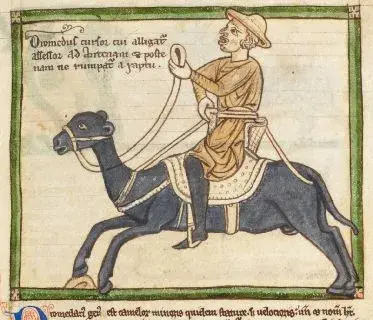 Dromedus cursor cui alligat᷑
assessor ad & poste
nam ne rumpat᷑ a raptu.
est camelor minoris quidem stature. velocioris.